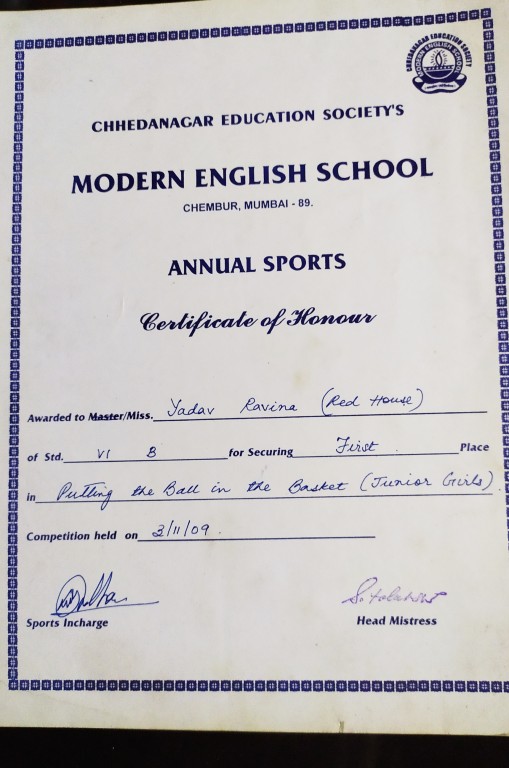 CHHEDANAGAR EDUCATION SOCIETY
MODERN ENGLISH SCHOOL
CHHEDANAGAR EDUCATION SOCIETY'S
MODERN ENGLISH SCHOOL
CHEMBUR, MUMBAI - 89.
ANNUAL SPORTS
Certificate of Honour
Awarded to Master/Miss. Yadav Ravina (Red House)
of Std. VI B for Securing First Place
in Putting the Ball in the Basket (Junior Girls)
Competition held on 2/11/09.
Sports Incharge Head Mistress